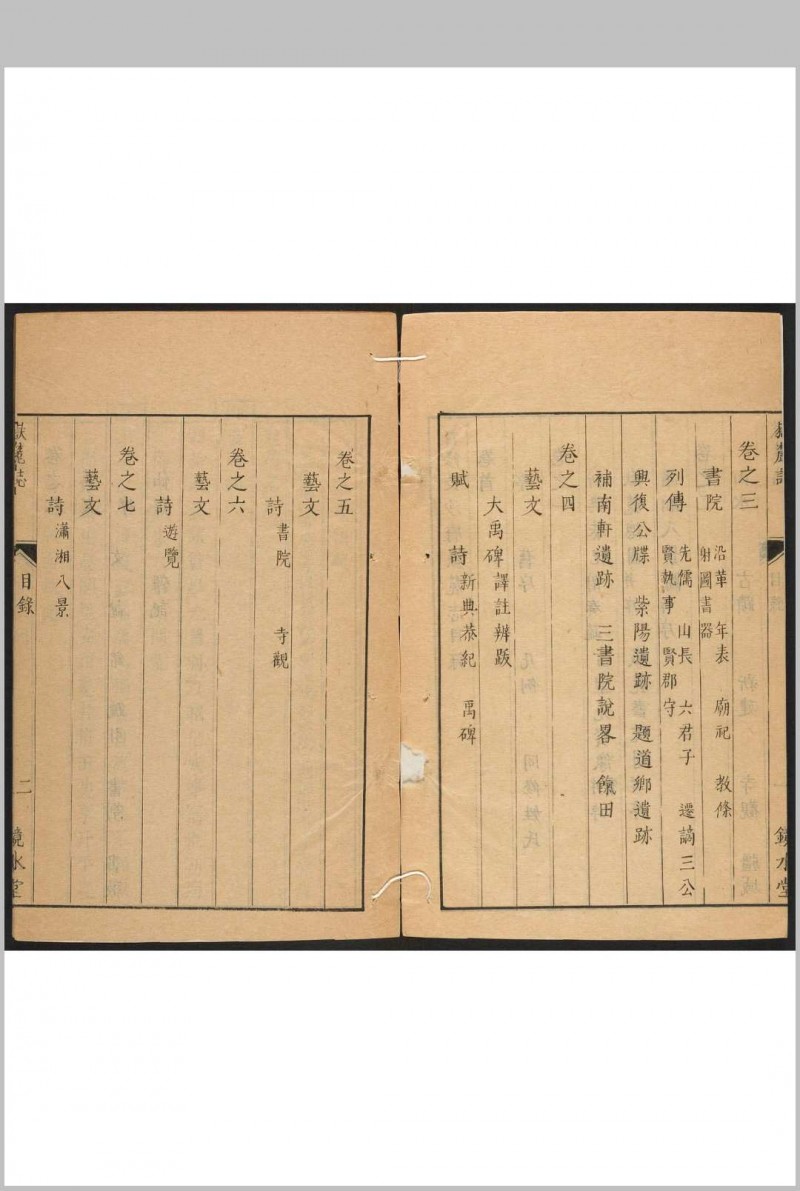 卷之三
書院 沿革 年表 廟祀 教條
射圃書器
列傳 先儒 山長 六君子 遷謫三公
賢執事 賢郡守
興復公牒 紫陽遺跡 題道鄉遺跡
補南軒遺跡 三書院說畧 餼田
卷之四
藝文
大禹碑 譯註辨跋
賦 詩 新典恭紀 禹碑
卷之五
藝文
詩 書院 寺觀
卷之六
藝文
詩 遊覽
卷之七
藝文
詩 瀟湘八景
嶽麓志 目錄 二 鏡水堂